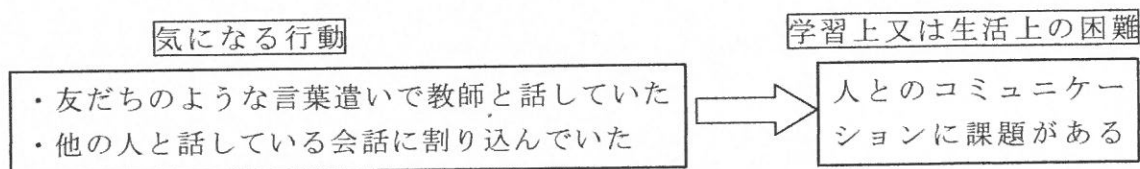 気になる行動
・友だちのような言葉遣いで教師と話していた
・他の人と話している会話に割り込んでいた
学習上又は生活上の困難
人とのコミュニケー
ションに課題がある